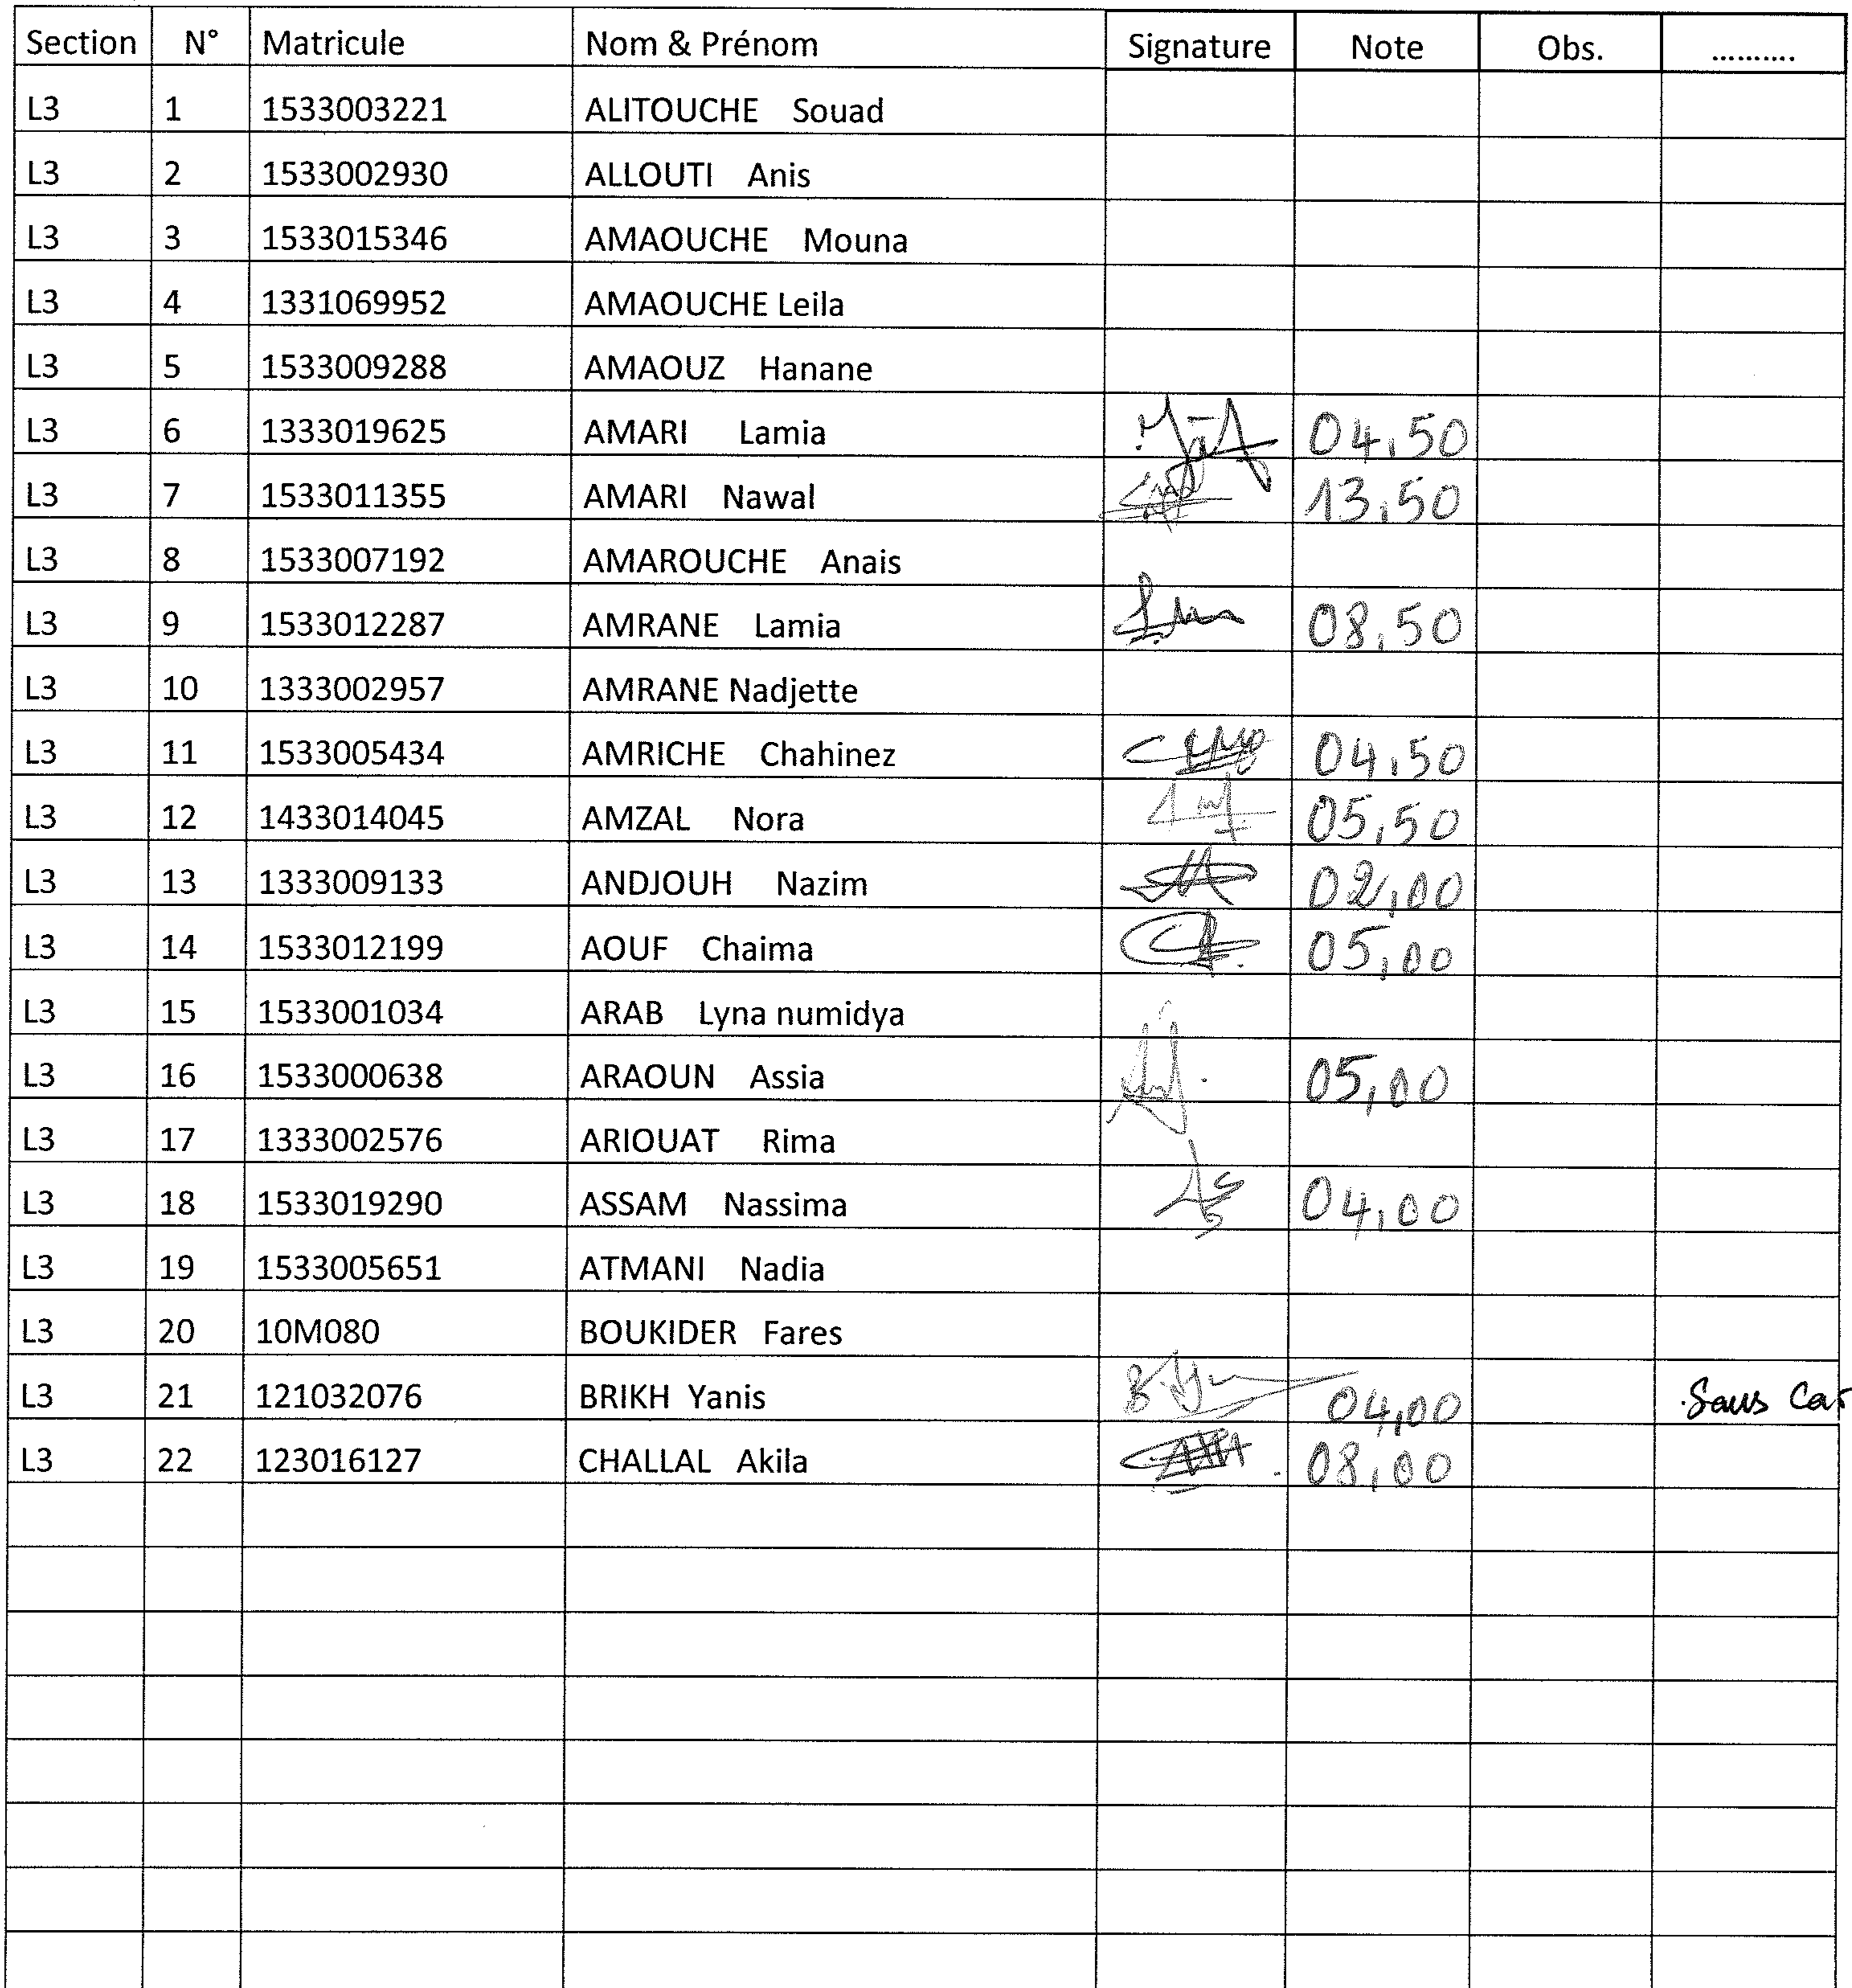 Section N° Matricule Nom & Prénom Signature Note Obs. ..........
L3 1 1533003221 ALITOUCHE Souad
L3 2 1533002930 ALLOUTI Anis
L3 3 1533015346 AMAOUCHE Mouna
L3 4 1331069952 AMAOUCHE Leila
L3 5 1533009288 AMAOUZ Hanane
L3 6 1333019625 AMARI Lamia 04,50
L3 7 1533011355 AMARI Nawal 13,50
L3 8 1533007192 AMAROUCHE Anais
L3 9 1533012287 AMRANE Lamia 08,50
L3 10 1333002957 AMRANE Nadjette
L3 11 1533005434 AMRICHE Chahinez 04,50
L3 12 1433014045 AMZAL Nora 05,50
L3 13 1333009133 ANDJOUH Nazim 02,00
L3 14 1533012199 AOUF Chaima 05,00
L3 15 1533001034 ARAB Lyna numidya
L3 16 1533000638 ARAOUN Assia 05,00
L3 17 1333002576 ARIOUAT Rima
L3 18 1533019290 ASSAM Nassima 04,00
L3 19 1533005651 ATMANI Nadia
L3 20 10M080 BOUKIDER Fares
L3 21 121032076 BRIKH Yanis 04,00 Sans Car
L3 22 123016127 CHALLAL Akila 08,00